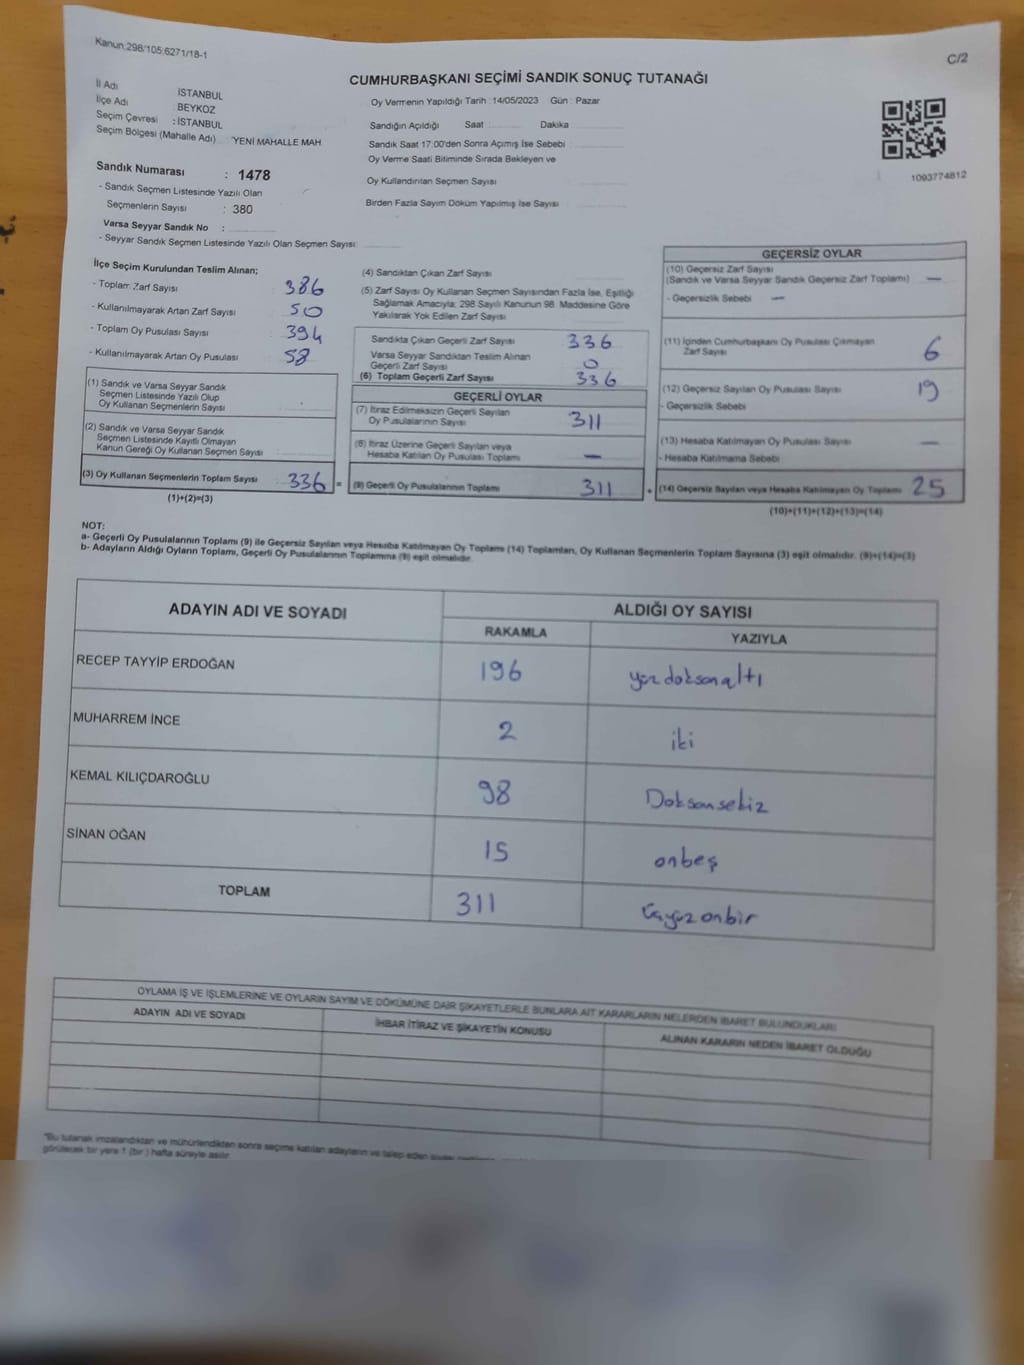 Kanun:298/105:6271/18-1
C/2
CUMHURBAŞKANI SEÇİMİ SANDIK SONUÇ TUTANAĞI
İl Adı İSTANBUL
İlçe Adı : BEYKOZ
Seçim Çevresi : İSTANBUL
Seçim Bölgesi (Mahalle Adı) YENİ MAHALLE MAH.
Sandık Numarası : 1478
- Sandık Seçmen Listesinde Yazılı Olan
Seçmenlerin Sayısı : 380
Varsa Seyyar Sandık No :
- Seyyar Sandık Seçmen Listesinde Yazılı Olan Seçmen Sayısı:
Oy Vermenin Yapıldığı Tarih : 14/05/2023 Gün : Pazar
Sandığın Açıldığı Saat Dakika
Sandık Saat 17:00'den Sonra Açımış İse Sebebi
Oy Verme Saati Bitiminde Sırada Bekleyen ve
Oy Kullandırılan Seçmen Sayısı
Birden Fazla Sayım Döküm Yapılmış İse Sayısı
1093774812
İlçe Seçim Kurulundan Teslim Alınan;
- Toplam Zarf Sayısı 386
- Kullanılmayarak Artan Zarf Sayısı 50
- Toplam Oy Pusulası Sayısı 394
- Kullanılmayarak Artan Oy Pusulası 58
(1) Sandık ve Varsa Seyyar Sandık
Seçmen Listesinde Yazılı Olup
Oy Kullanan Seçmenlerin Sayısı
(2) Sandık ve Varsa Seyyar Sandık
Seçmen Listesinde Kayıtlı Olmayan
Kanun Gereği Oy Kullanan Seçmen Sayısı
(3) Oy Kullanan Seçmenlerin Toplam Sayısı 336 =
(1)+(2)=(3)
(4) Sandıktan Çıkan Zarf Sayısı
(5) Zarf Sayısı Oy Kullanan Seçmen Sayısından Fazla İse, Eşitliği
Sağlamak Amacıyla; 298 Sayılı Kanunun 98. Maddesine Göre
Yakılarak Yok Edilen Zarf Sayısı
Sandıkta Çıkan Geçerli Zarf Sayısı 336
Varsa Seyyar Sandıktan Teslim Alınan
Geçerli Zarf Sayısı 0
(6) Toplam Geçerli Zarf Sayısı 336
GEÇERLİ OYLAR
(7) İtiraz Edilmeksizin Geçerli Sayılan
Oy Pusulalarının Sayısı 311
(8) İtiraz Üzerine Geçerli Sayılan veya
Hesaba Katılan Oy Pusulası Toplamı —
(9) Geçerli Oy Pusulalarının Toplamı 311 +
GEÇERSİZ OYLAR
(10) Geçersiz Zarf Sayısı
(Sandık ve Varsa Seyyar Sandık Geçersiz Zarf Toplamı) —
- Geçersizlik Sebebi —
(11) İçinden Cumhurbaşkanı Oy Pusulası Çıkmayan
Zarf Sayısı 6
(12) Geçersiz Sayılan Oy Pusulası Sayısı 19
- Geçersizlik Sebebi
(13) Hesaba Katılmayan Oy Pusulası Sayısı —
- Hesaba Katılmama Sebebi
(14) Geçersiz Sayılan veya Hesaba Katılmayan Oy Toplamı 25
(10)+(11)+(12)+(13)=(14)
NOT:
a- Geçerli Oy Pusulalarının Toplamı (9) ile Geçersiz Sayılan veya Hesaba Katılmayan Oy Toplamı (14) Toplamları, Oy Kullanan Seçmenlerin Toplam Sayısına (3) eşit olmalıdır. (9)+(14)=(3)
b- Adayların Aldığı Oyların Toplamı, Geçerli Oy Pusulalarının Toplamına (9) eşit olmalıdır.
ADAYIN ADI VE SOYADI ALDIĞI OY SAYISI
RAKAMLA YAZIYLA
RECEP TAYYİP ERDOĞAN 196 yüzdoksanaltı
MUHARREM İNCE 2 iki
KEMAL KILIÇDAROĞLU 98 Doksansekiz
SİNAN OĞAN 15 onbeş
TOPLAM 311 Üçyüzonbir
OYLAMA İŞ VE İŞLEMLERİNE VE OYLARIN SAYIM VE DÖKÜMÜNE DAİR ŞİKAYETLERLE BUNLARA AİT KARARLARIN NELERDEN İBARET BULUNDUKLARI
ADAYIN ADI VE SOYADI İHBAR İTİRAZ VE ŞİKAYETİN KONUSU ALINAN KARARIN NEDEN İBARET OLDUĞU
*Bu tutanak imzalandıktan ve mühürlendikten sonra seçime katılan adayların ve talep eden siyasi
görülecek bir yere 1 (bir ) hafta süreyle asılır.